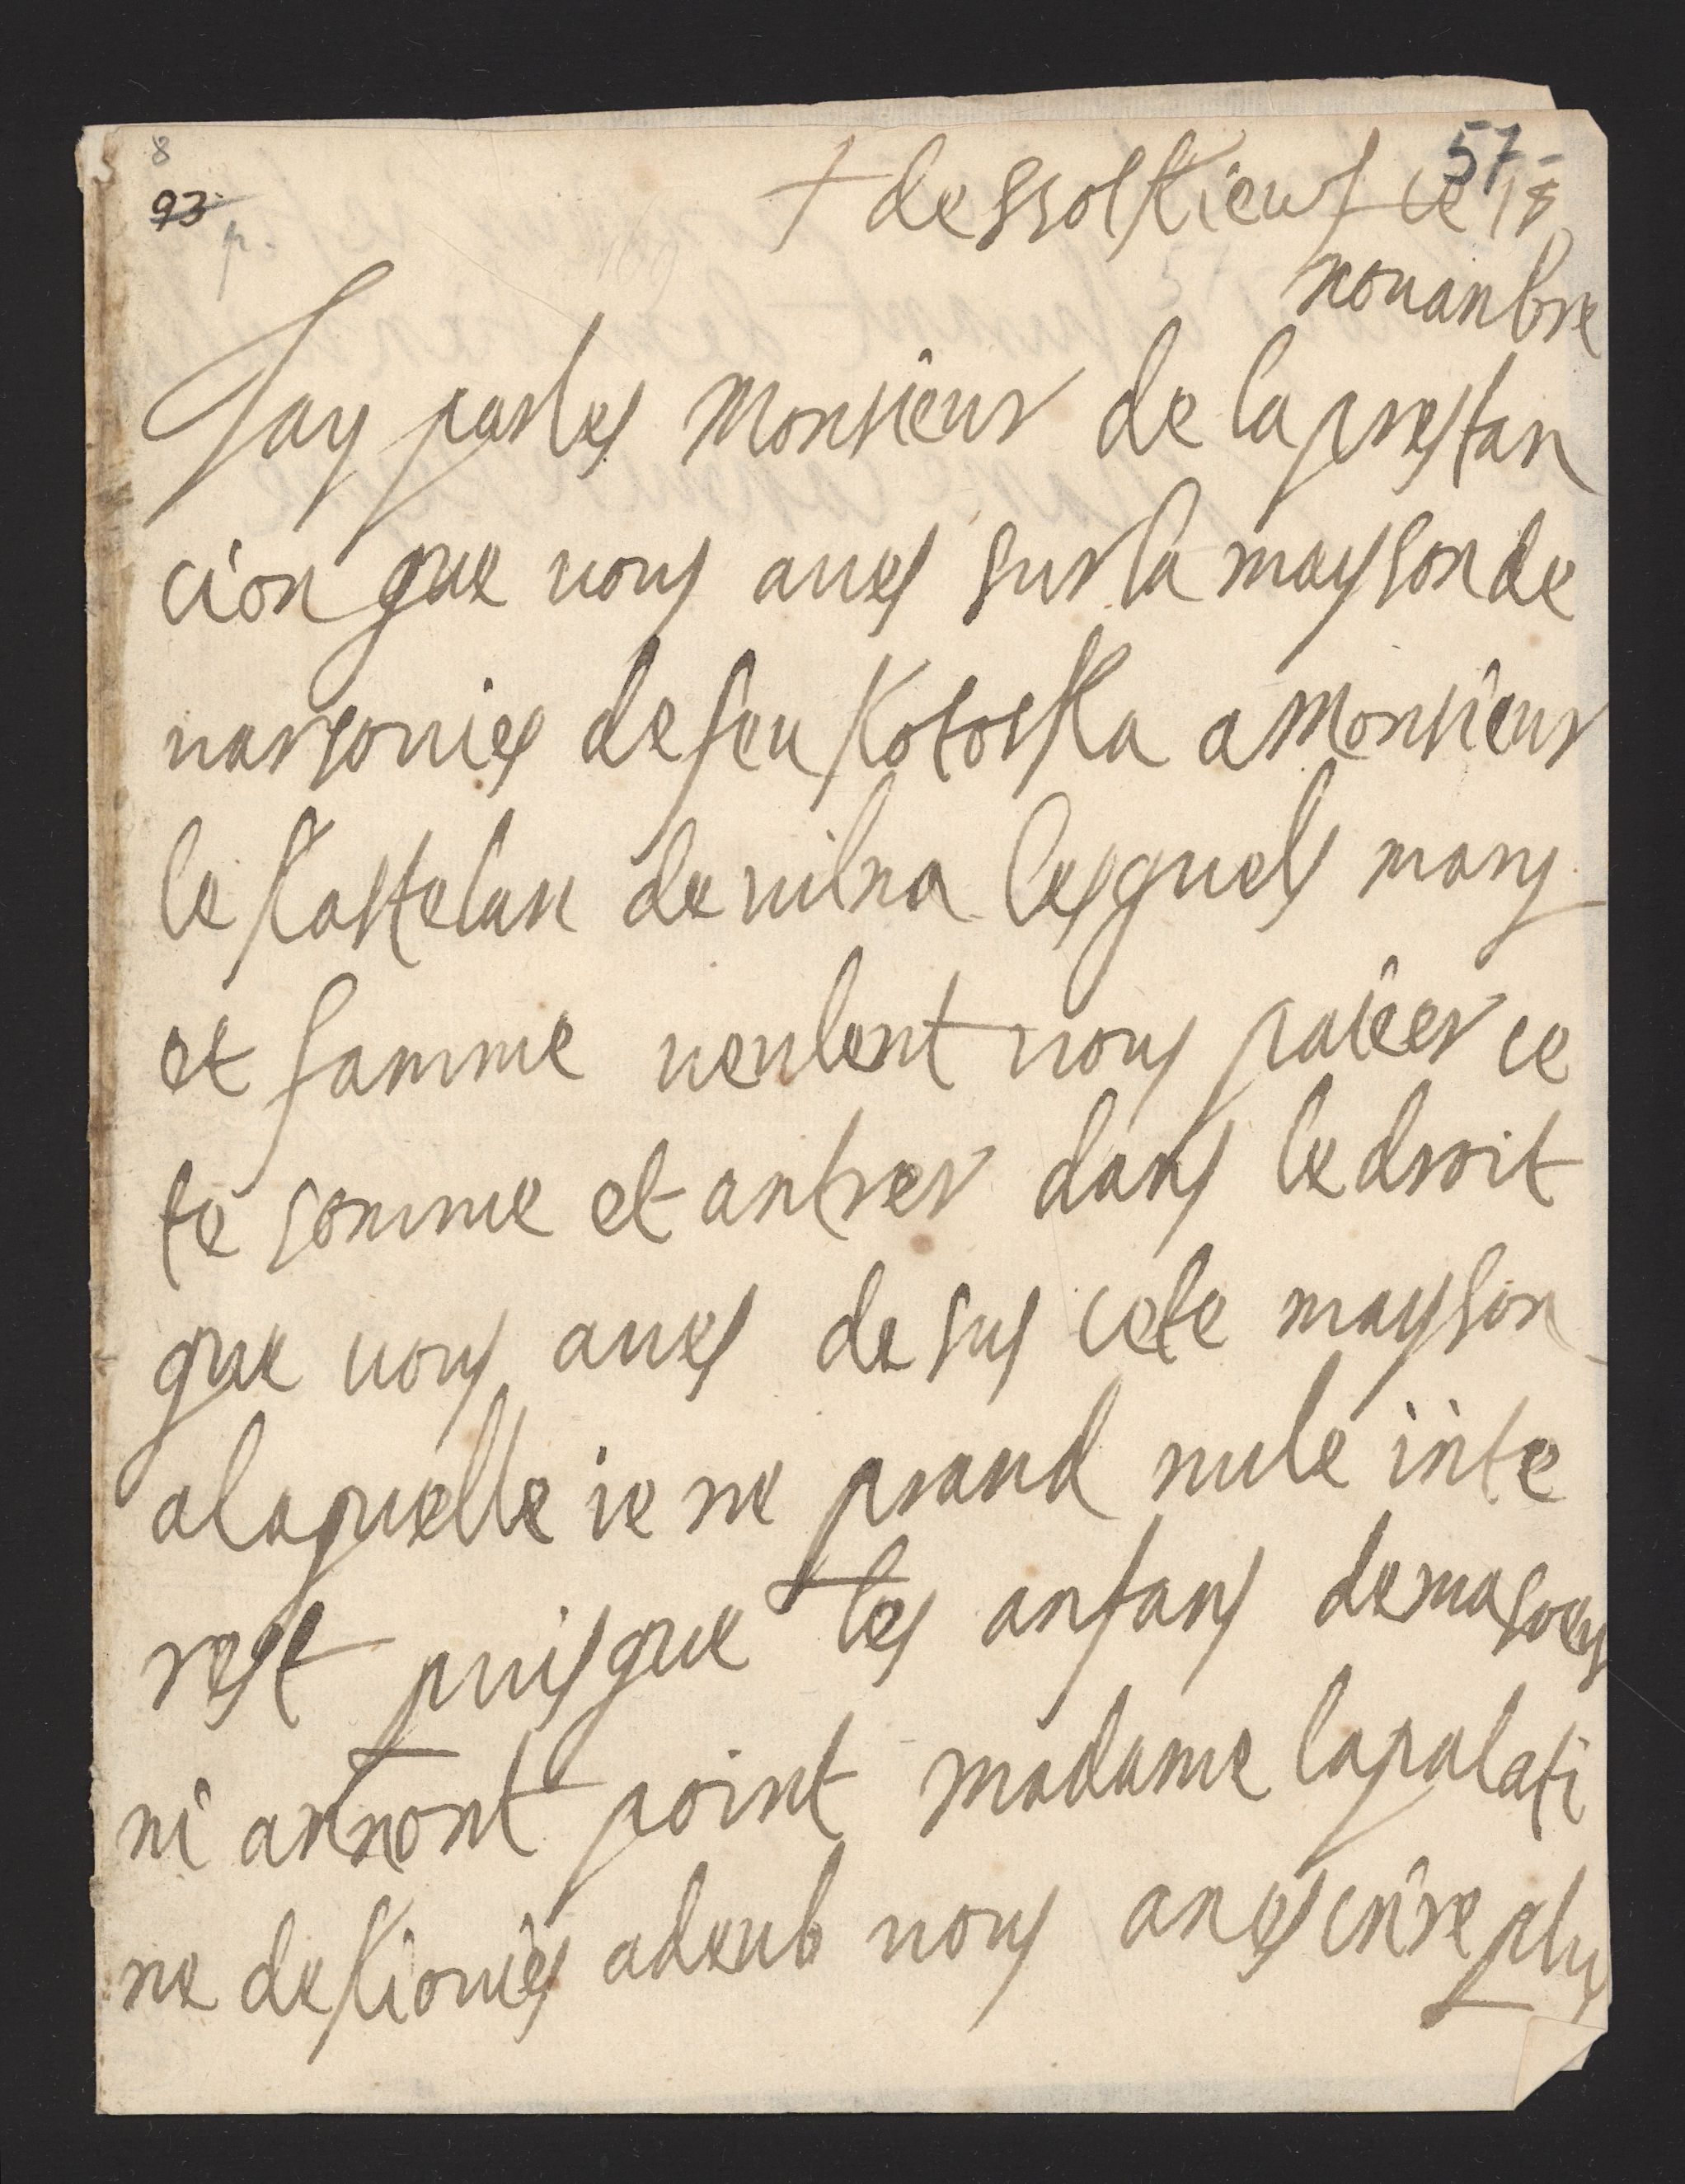 8
57
93
+ de ssolkieuf ce 18
nouanbre
Jay parles Monsieur de la prestan
cion que uous aues sur la mayson de
uarsouies de feu Kotoska a Monsieur
le Kastelan de uilna lesquels mary
et famme ueulent uous paieer ce
te somme et antrer dans le droit
que uous aues de sus cete mayson
a laquelle ie ne prand nule inte
rest puisque les anfans de ma soeur
ni annont point madame la palati
ne de Kiouies a deub uous an escrire plus